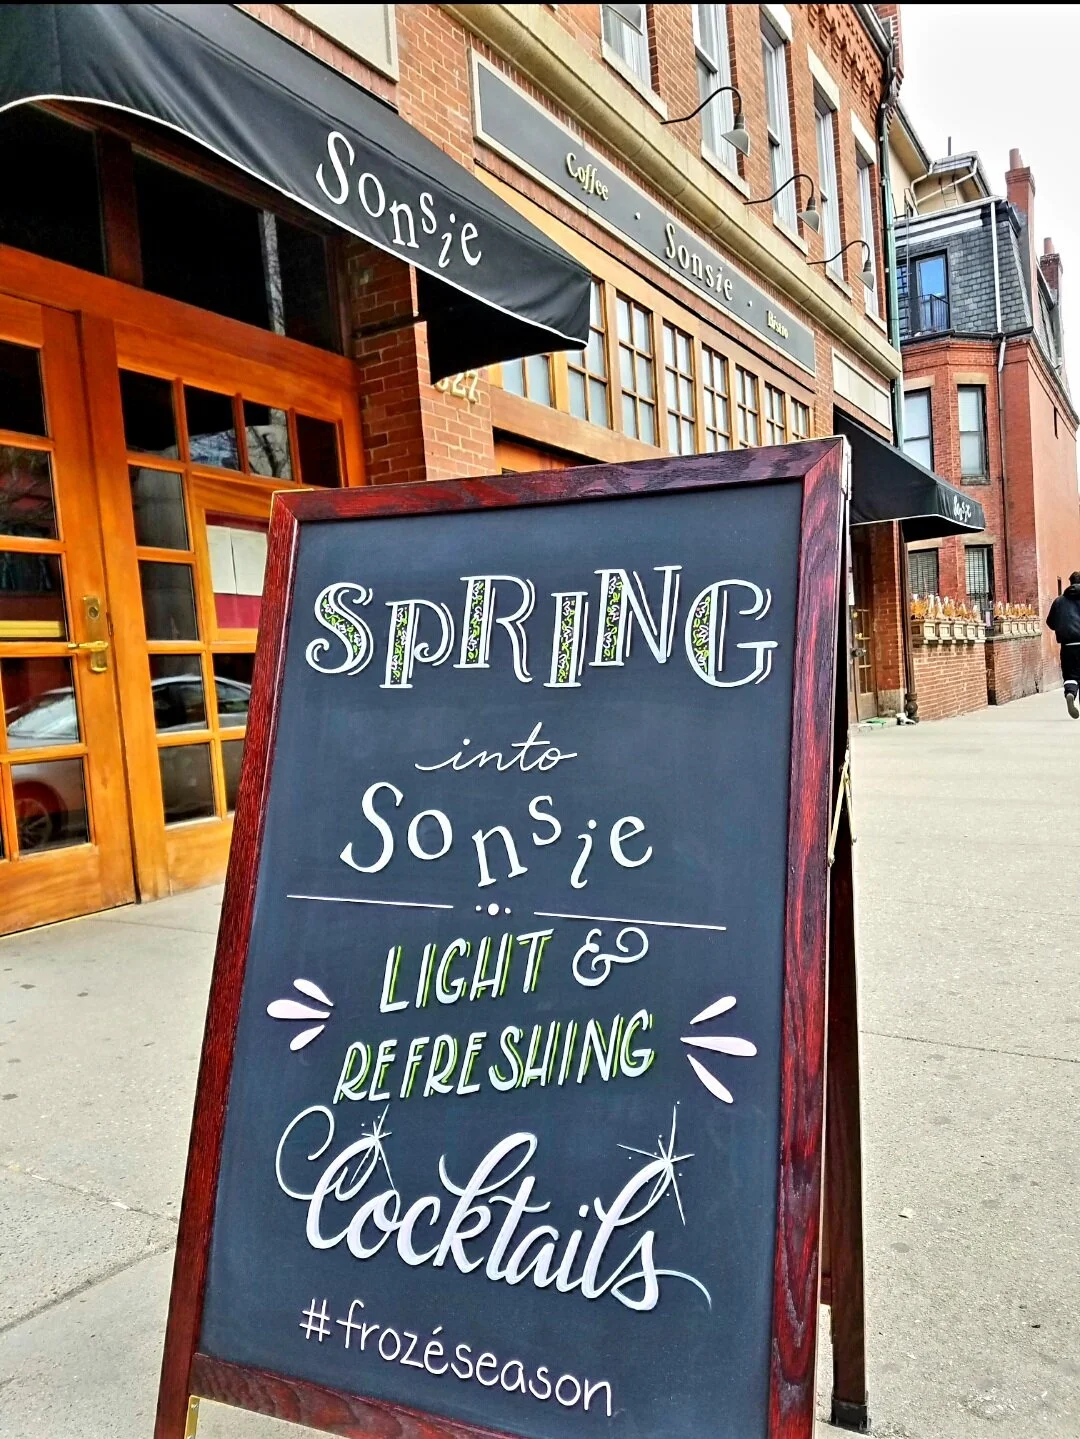 Sonsie
Coffee · Sonsie · Bistro
327
Sonsie
SPRING
into
Sonsie
LIGHT &
REFRESHING
Cocktails
#frozéseason